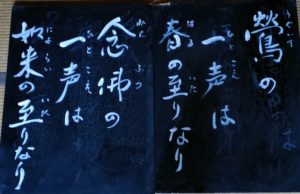 鶯の
一声は
春の至りなり
念佛の
一声は
如来の至りなり